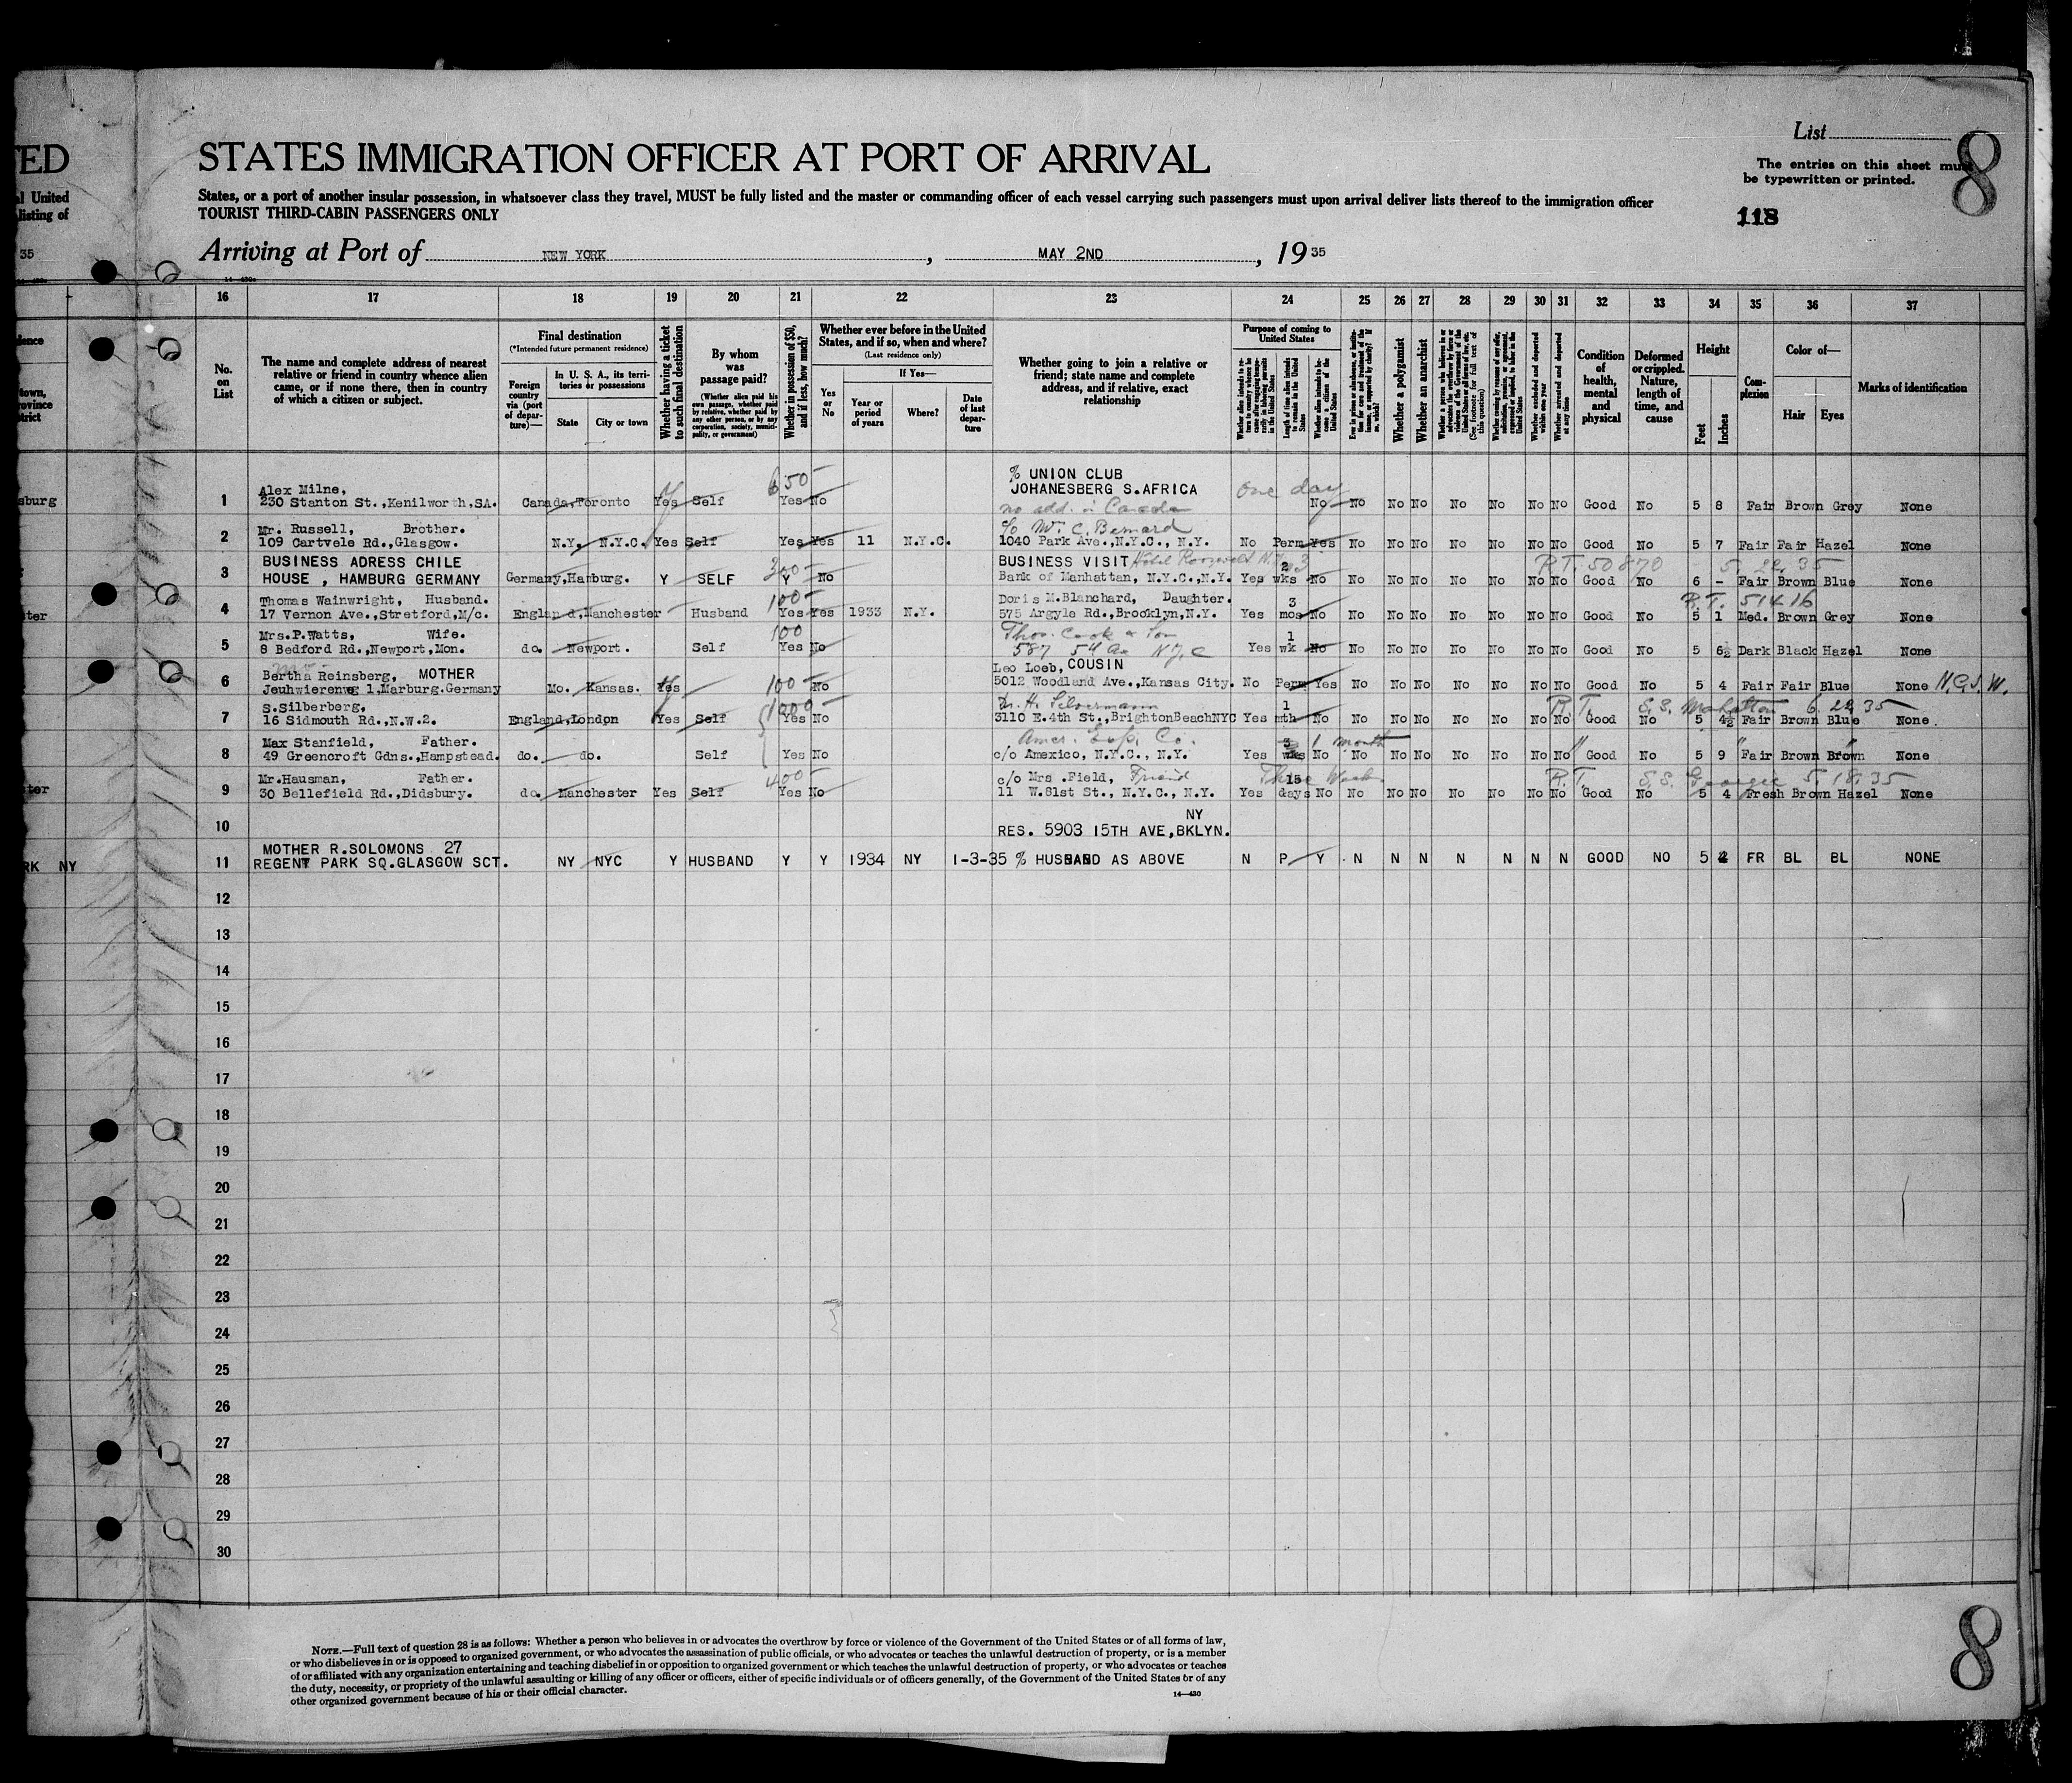 TED
al United
listing of
35
List
8
The entries on this sheet must
be typewritten or printed.
118
STATES IMMIGRATION OFFICER AT PORT OF ARRIVAL
States, or a port of another insular possession, in whatsoever class they travel, MUST be fully listed and the master or commanding officer of each vessel carrying such passengers must upon arrival deliver lists thereof to the immigration officer
TOURIST THIRD-CABIN PASSENGERS ONLY
Arriving at Port of NEW YORK, MAY 2ND, 1935
16 17 18 19 20 21 22 23 24 25 26 27 28 29 30 31 32 33 34 35 36 37
No. on List
The name and complete address of nearest
relative or friend in country whence alien
came, or if none there, then in country
of which a citizen or subject.
Final destination
(*Intended future permanent residence)
Foreign country via (port of departure)—
In U. S. A., its territories or possessions
State
City or town
Whether having a ticket to such final destination
By whom was passage paid?
(Whether alien paid his own passage, whether paid by relative, whether paid by any other person, or by any corporation, society, municipality, or government)
Whether in possession of $50, and if less, how much?
Whether ever before in the United
States, and if so, when and where?
(Last residence only)
Yes or No
If Yes—
Year or period of years
Where?
Date of last departure
Whether going to join a relative or
friend; state name and complete
address, and if relative, exact
relationship
Purpose of coming to United States
Whether alien intends to return to country whence he came after engaging temporarily in laboring pursuits in the United States
Length of time alien intends to remain in the United States
Whether alien intends to become a citizen of the United States
Ever in prison or almshouse, or institution for care and treatment of the insane, or supported by charity? If so, which?
Whether a polygamist
Whether an anarchist
Whether a person who believes in or advocates the overthrow by force or violence of the Government of the United States or all forms of law, etc. (See footnote for full text of this question)
Whether coming by reason of any offer, solicitation, promise, or agreement, expressed or implied, to labor in the United States
Whether excluded and deported within one year
Whether arrested and deported at any time
Condition of health, mental and physical
Deformed or crippled. Nature, length of time, and cause
Height
Feet
Inches
Complexion
Color of—
Hair
Eyes
Marks of identification
% UNION CLUB
Alex Milne, 650 JOHANESBERG S.AFRICA one day
1 230 Stanton St.,Kenilworth,SA. Canada,Toronto Yes Self Yes No no add. in Canada No No No No No No No No Good No 5 8 Fair Brown Grey None
Mr. Russell, Brother. c/o W. C. Bernard
2 109 Cartvele Rd.,Glasgow. N.Y. N.Y.C. Yes Self Yes Yes 11 N.Y.C. 1040 Park Ave.,N.Y.C., N.Y. No Perm Yes No No No No No No No Good No 5 7 Fair Fair Hazel None
BUSINESS ADRESS CHILE 300 BUSINESS VISIT Hotel Roosevelt N.Y. 2 3 R.T. 50870 5. 22. 35
3 HOUSE , HAMBURG GERMANY Germany,Hamburg. Y SELF Y No Bank of Manhattan, N.Y.C.,N.Y. Yes wks No No No No No No No No Good No 6 - Fair Brown Blue None
Thomas Wainwright, Husband. 100 Doris M.Blanchard, Daughter. 3 R.T. 51416
4 17 Vernon Ave.,Stretford,M/c. England,Manchester Husband Yes Yes 1933 N.Y. 575 Argyle Rd.,Brooklyn,N.Y. Yes mos No No No No No No No No Good No 5 1 Med. Brown Grey None
Mrs.P.Watts, Wife. 100 Thos. Cook & Son 1
5 8 Bedford Rd.,Newport,Mon. do. Newport. Self Yes No 587 5th Av N.Y.C Yes wk No No No No No No No No Good No 5 6½ Dark Black Hazel None
Bertha Reinsberg, MOTHER Leo Loeb, COUSIN
6 Jeuhwierenwg 1.Marburg.Germany Mo. Kansas. Yes 100 No 5012 Woodland Ave.,Kansas City. No Perm Yes No No No No No No No Good No 5 4 Fair Fair Blue None N.G.S.W.
S.Silberberg, 1000 1 R.T. S.S. Manhattan 6. 29. 35
7 16 Sidmouth Rd.,N.W.2. England,London Yes Self Yes No 3110 E.4th St.,BrightonBeachNYC Yes mth No No No No No No No No Good No 5 4½ Fair Brown Blue None
Max Stanfield, Father. Amer. Exp. Co. 3 1 month
8 49 Greencroft Gdns.,Hampstead. do. do. Self Yes No c/o Amexico, N.Y.C., N.Y. Yes wks No No No No No No No No Good No 5 9 Fair Brown Brown None
Mr.Hausman, Father. 400 c/o Mrs .Field, Friend Three Weeks 15 R.T. S.S. Georgic 5. 18. 35
9 30 Bellefield Rd.,Didsbury. do. Manchester Yes Self Yes No 11 W.81st St., N.Y.C., N.Y. Yes days No No No No No No No No Good No 5 4 Fresh Brown Hazel None
NY
10 RES. 5903 15TH AVE,BKLYN.
MOTHER R.SOLOMONS 27
RK NY 11 REGENT PARK SQ.GLASGOW SCT. NY NYC Y HUSBAND Y Y 1934 NY 1-3-35 % HUSBAND AS ABOVE N P Y N N N N N N N GOOD NO 5 2 FR BL BL NONE
12
13
14
15
16
17
18
19
20
21
22
23
24
25
26
27
28
29
30
NOTE.—Full text of question 28 is as follows: Whether a person who believes in or advocates the overthrow by force or violence of the Government of the United States or of all forms of law,
or who disbelieves in or is opposed to organized government, or who advocates the assassination of public officials, or who advocates or teaches the unlawful destruction of property, or is a member
of or affiliated with any organization entertaining and teaching disbelief in or opposition to organized government or which teaches the unlawful destruction of property, or who advocates or teaches
the duty, necessity, or propriety of the unlawful assaulting or killing of any officer or officers, either of specific individuals or of officers generally, of the Government of the United States or of any
other organized government because of his or their official character.
14—430
8